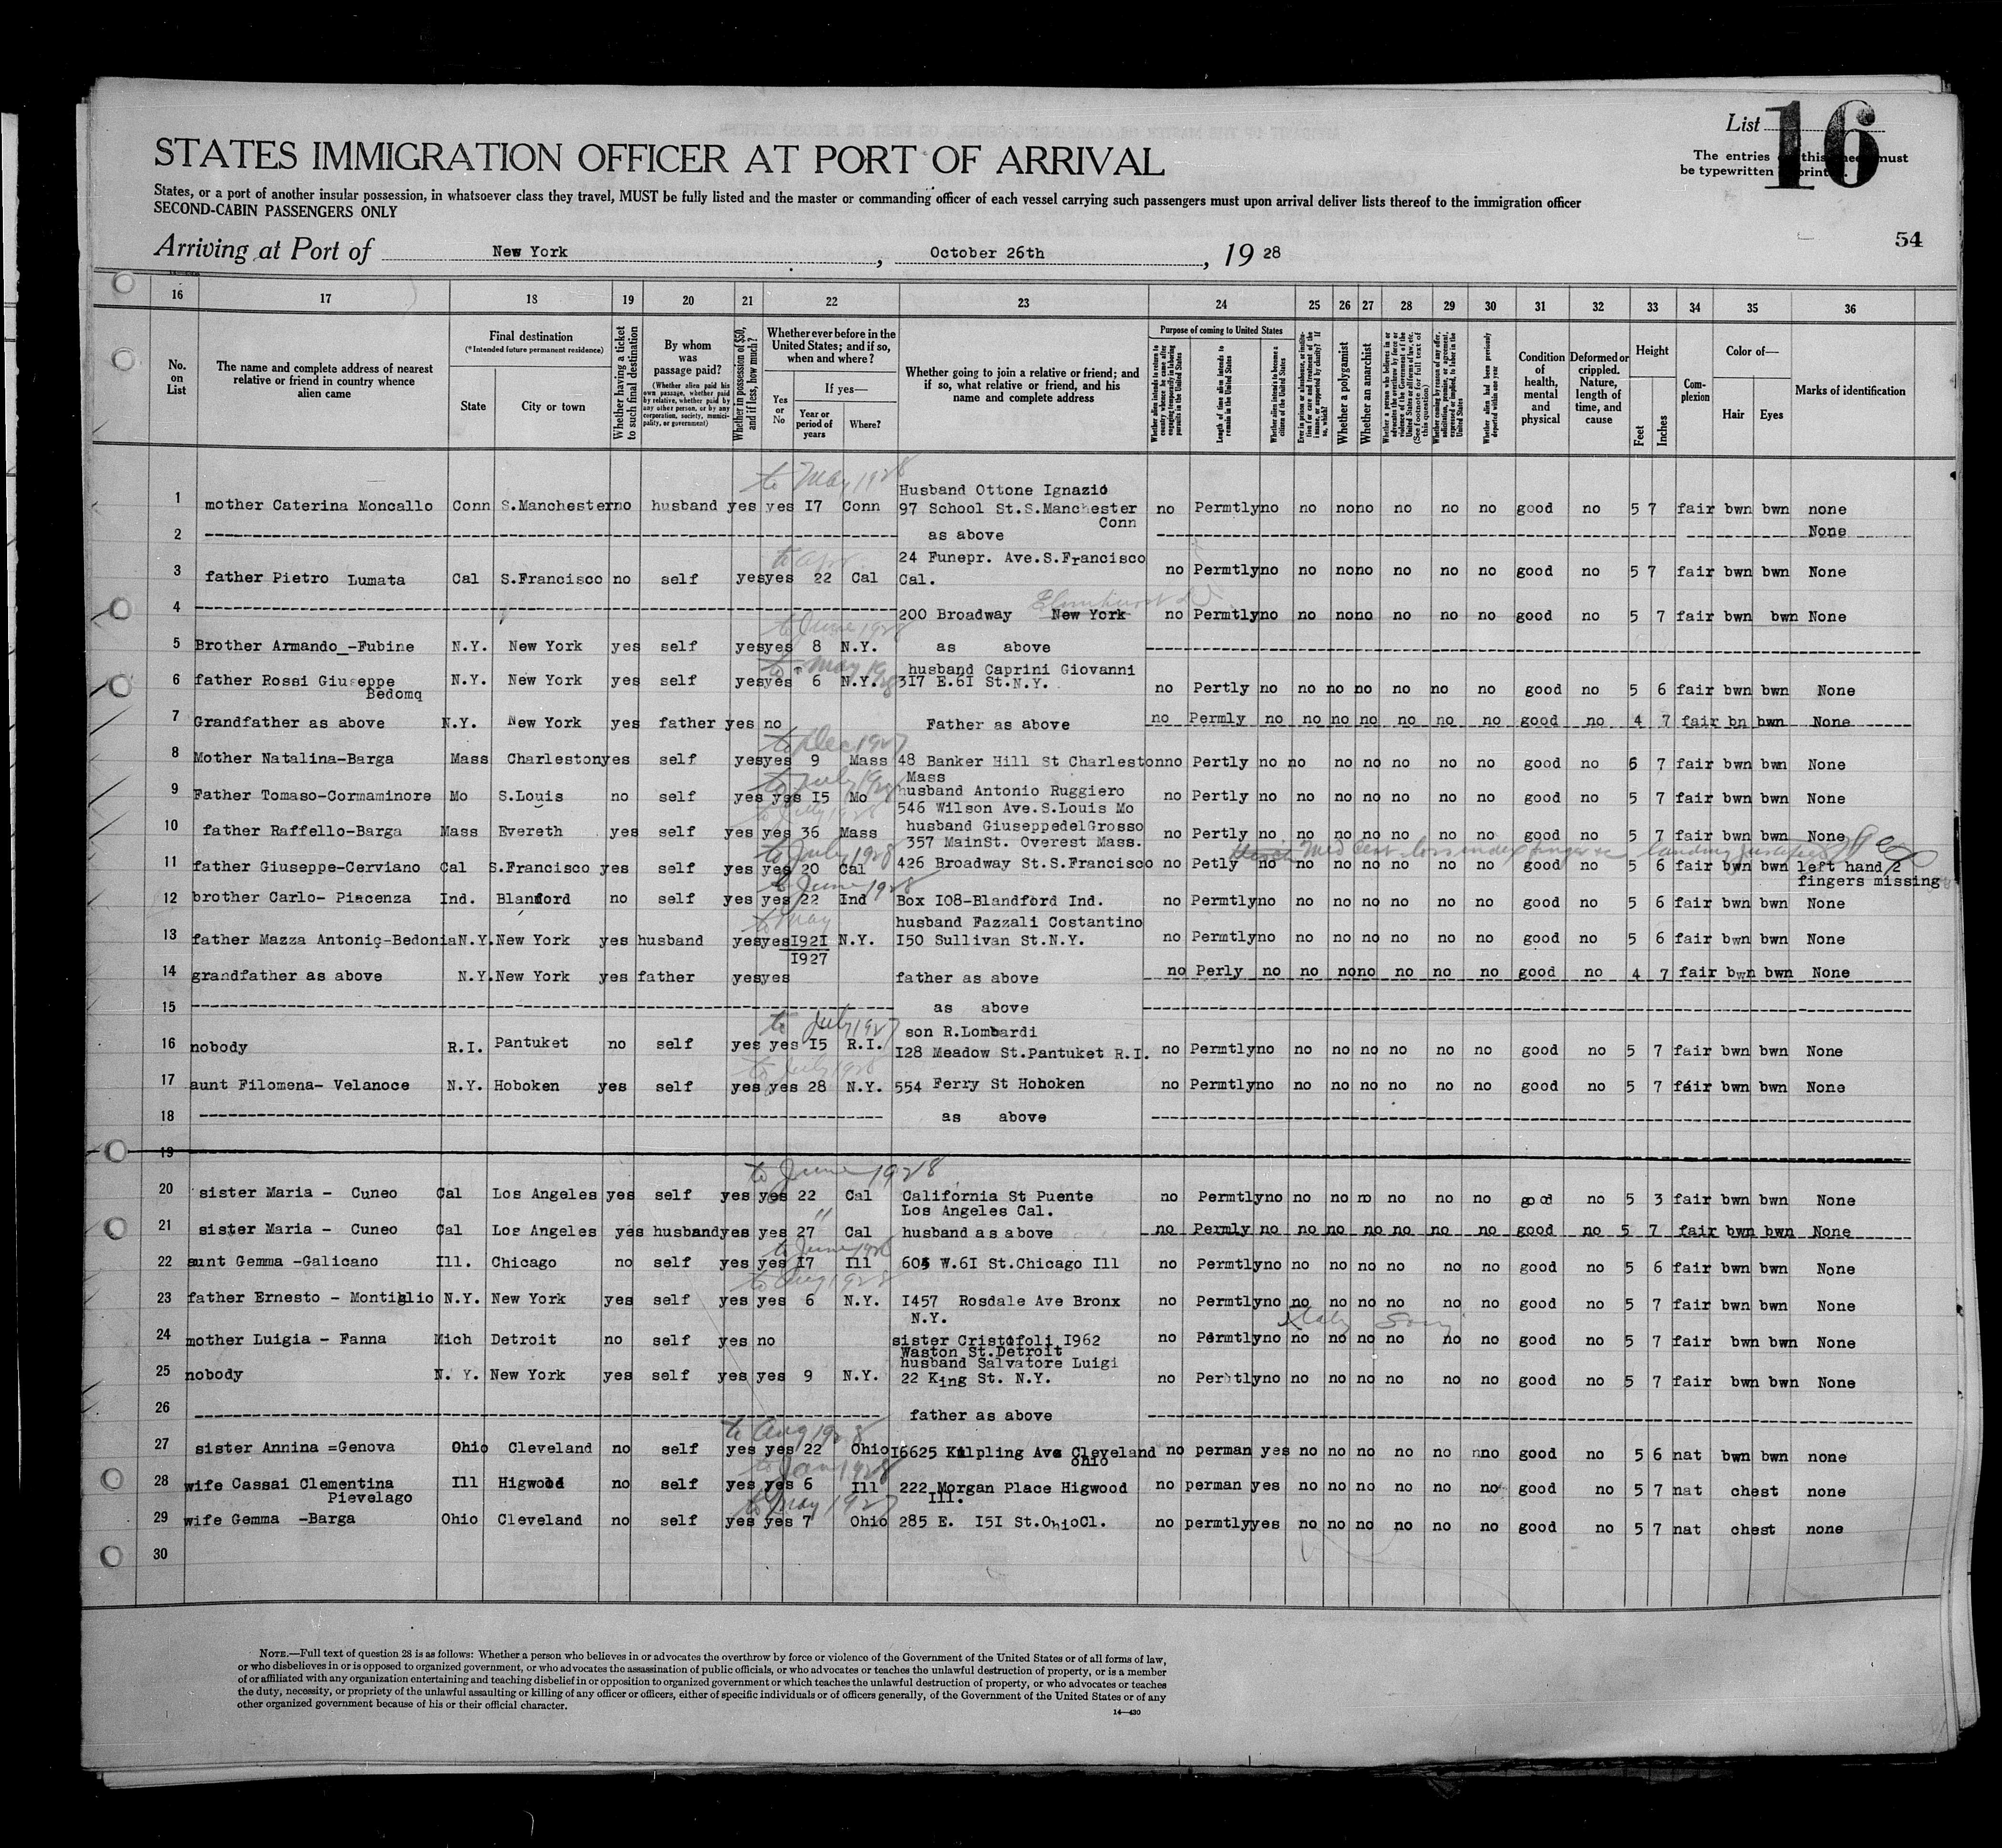 List 16
The entries this must
be typewritten
STATES IMMIGRATION OFFICER AT PORT OF ARRIVAL
States, or a port of another insular possession, in whatsoever class they travel, MUST be fully listed and the master or commanding officer of each vessel carrying such passengers must upon arrival deliver lists thereof to the immigration officer
SECOND-CABIN PASSENGERS ONLY
54
Arriving at Port of New York, October 26th, 19 28
16 17 18 19 20 21 22 23 24 25 26 27 28 29 30 31 32 33 34 35 36
No. on List
The name and complete address of nearest relative or friend in country whence alien came
Final destination
(*Intended future permanent residence)
State
City or town
Whether having a ticket to such final destination
By whom was passage paid?
(Whether alien paid his own passage, whether paid by relative, whether paid by any other person, or by any corporation, society, municipality, or government)
Whether in possession of $50, and if less, how much?
Whether ever before in the United States; and if so, when and where?
Yes or No
If yes—
Year or period of years
Where?
Whether going to join a relative or friend; and if so, what relative or friend, and his name and complete address
Purpose of coming to United States
Whether alien intends to return to country whence he came after engaging temporarily in laboring pursuits in the United States
Length of time alien intends to remain in the United States
Whether alien intends to become a citizen of the United States
Whether a polygamist
Whether an anarchist
Whether alien had been previously deported within one year
Condition of health, mental and physical
Deformed or crippled. Nature, length of time, and cause
Height
Feet
Inches
Complexion
Color of—
Hair
Eyes
Marks of identification
to May 1928
1 mother Caterina Moncallo Conn S.Manchester no husband yes yes I7 Conn Husband Ottone Ignazio
97 School St.S.Manchester Conn no Permtly no no no no no no no good no 5 7 fair bwn bwn none
2 as above None
3 father Pietro Lumata Cal S.Francisco no self yes yes 22 Cal 24 Funepr. Ave.S.Francisco
Cal. no Permtly no no no no no no no good no 5 7 fair bwn bwn None
4 200 Broadway New York no Permtly no no no no no no no good no 5 7 fair bwn bwn None
to June 1928
5 Brother Armando_-Fubine N.Y. New York yes self yes yes 8 N.Y. as above
to May 1928
6 father Rossi Giuseppe N.Y. New York yes self yes yes 6 N.Y. husband Caprini Giovanni
Bedomq 3I7 E.6I St.N.Y. no Pertly no no no no no no no good no 5 6 fair bwn bwn None
7 Grandfather as above N.Y. New York yes father yes no Father as above no Permly no no no no no no no good no 4 7 fair bn bwn None
to Dec 1927
8 Mother Natalina-Barga Mass Charleston yes self yes yes 9 Mass 48 Banker Hill St Charleston no Pertly no no no no no no no good no 6 7 fair bwn bwn None
Mass
to July 1928
9 Father Tomaso-Cormaminore Mo S.Louis no self yes yes I5 Mo husband Antonio Ruggiero
546 Wilson Ave.S.Louis Mo no Pertly no no no no no no no good no 5 7 fair bwn bwn None
to July 1928
10 father Raffello-Barga Mass Evereth yes self yes yes 36 Mass husband GiuseppedelGrosso
357 MainSt. Overest Mass. no Pertly no no no no no no no good no 5 7 fair bwn bwn None
to July 1928
Med Cert loss index finger
11 father Giuseppe-Cerviano Cal S.Francisco yes self yes yes 20 Cal 426 Broadway St.S.Francisco no Petly no no no no no no no good no 5 6 fair bwn bwn left hand 2
fingers missing
to June 1928
12 brother Carlo- Piacenza Ind. Blanford no self yes yes 22 Ind Box I08-Blandford Ind. no Permtly no no no no no no no good no 5 6 fair bwn bwn None
to May
13 father Mazza Antonio-Bedonia N.Y. New York yes husband yes yes I92I N.Y. husband Fazzali Costantino
I927 I50 Sullivan St.N.Y. no Permtly no no no no no no no good no 5 6 fair bwn bwn None
14 grandfather as above N.Y. New York yes father yes yes father as above no Perly no no no no no no no good no 4 7 fair bwn bwn None
15 as above
to July 1927
16 nobody R.I. Pantuket no self yes yes I5 R.I. son R.Lombardi
I28 Meadow St.Pantuket R.I. no Permtly no no no no no no no good no 5 7 fair bwn bwn None
to July 1928
17 aunt Filomena- Velanoce N.Y. Hoboken yes self yes yes 28 N.Y. 554 Ferry St Hoboken no Permtly no no no no no no no good no 5 7 fair bwn bwn None
18 as above
19
to June 1928
20 sister Maria - Cuneo Cal Los Angeles yes self yes yes 22 Cal California St Puente
Los Angeles Cal. no Permtly no no no no no no no good no 5 3 fair bwn bwn None
"
21 sister Maria - Cuneo Cal Los Angeles yes husband yes yes 27 Cal husband as above no Permly no no no no no no no good no 5 7 fair bwn bwn None
to June 1928
22 aunt Gemma -Galicano Ill. Chicago no self yes yes I7 Ill 605 W.6I St.Chicago Ill no Permtly no no no no no no no good no 5 6 fair bwn bwn None
to Aug 1928
23 father Ernesto - Montiglio N.Y. New York yes self yes yes 6 N.Y. I457 Rosdale Ave Bronx
N.Y. no Permtly no no no no no no no good no 5 7 fair bwn bwn None
24 mother Luigia - Fanna Mich Detroit no self yes no sister Cristofoli I962
Waston St.Detroit no Permtly no no no no no no no good no 5 7 fair bwn bwn None
25 nobody N. Y. New York yes self yes yes 9 N.Y. husband Salvatore Luigi
22 King St. N.Y. no Permtly no no no no no no no good no 5 7 fair bwn bwn None
26 father as above
to Aug 1928
27 sister Annina =Genova Ohio Cleveland no self yes yes 22 Ohio I6625 Kilpling Ave Cleveland
ohio no perman yes no no no no no nno good no 5 6 nat bwn bwn none
to Jan 1928
28 wife Cassai Clementina Ill Higwood no self yes yes 6 Ill 222 Morgan Place Higwood
Pievelago Ill. no perman yes no no no no no no good no 5 7 nat chest none
to May 1927
29 wife Gemma -Barga Ohio Cleveland no self yes yes 7 Ohio 285 E. I5I St.OhioCl. no permtly yes no no no no no no good no 5 7 nat chest none
30
NOTE.—Full text of question 28 is as follows: Whether a person who believes in or advocates the overthrow by force or violence of the Government of the United States or of all forms of law,
or who disbelieves in or is opposed to organized government, or who advocates the assassination of public officials, or who advocates or teaches the unlawful destruction of property, or is a member
of or affiliated with any organization entertaining and teaching disbelief in or opposition to organized government or which teaches the unlawful destruction of property, or who advocates or teaches
the duty, necessity, or propriety of the unlawful assaulting or killing of any officer or officers, either of specific individuals or of officers generally, of the Government of the United States or of any
other organized government because of his or their official character.
14—430